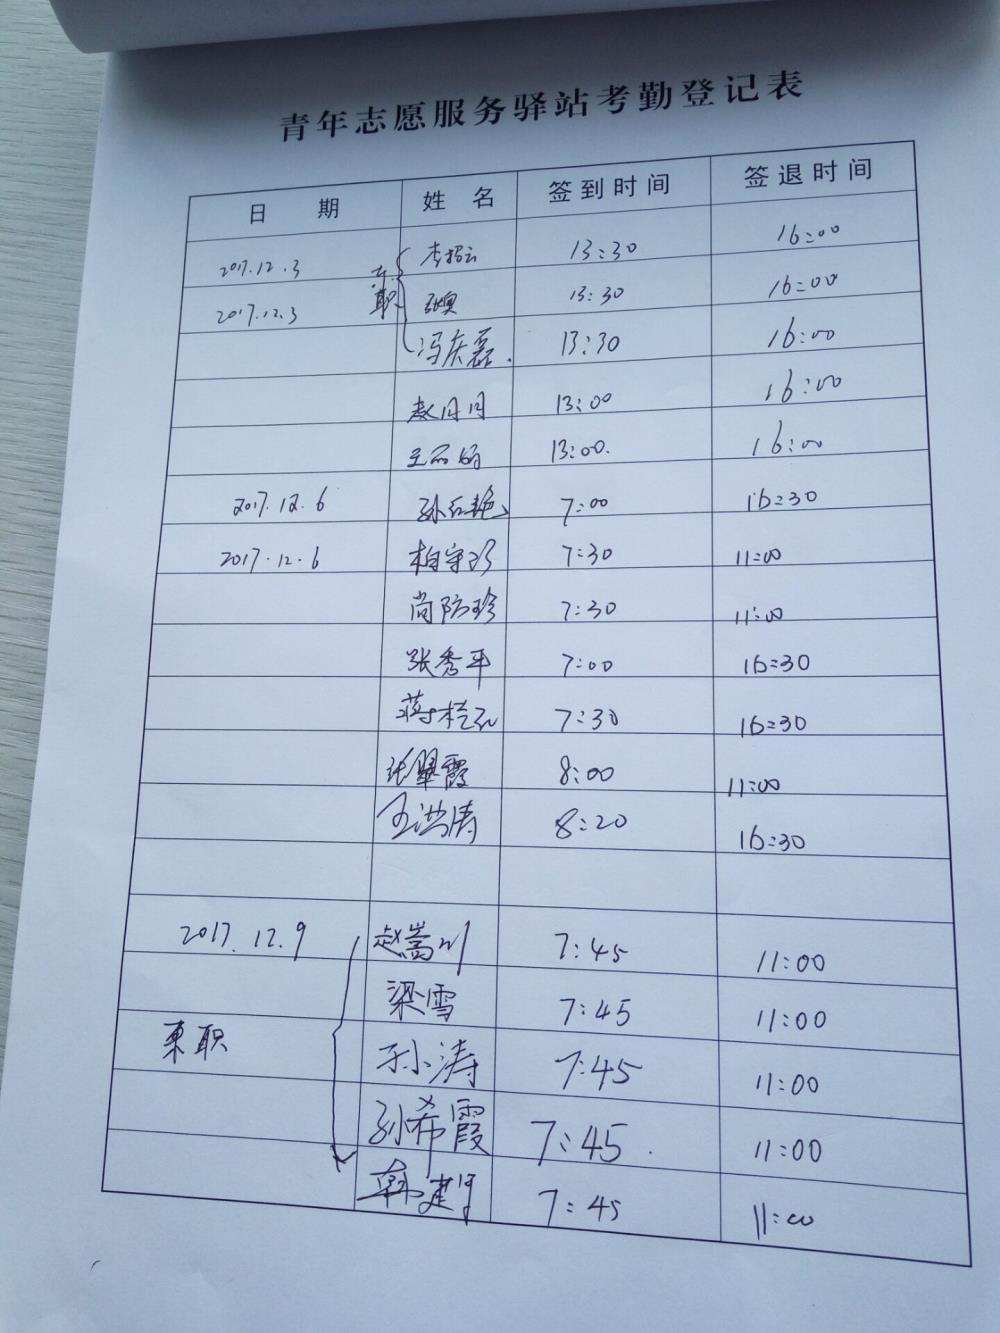 青年志愿服务驿站考勤登记表
日 期 姓 名 签到时间 签退时间
2017.12.3 李招云 13:30 16:00
2017.12.3 职 13:30 16:00
冯庆磊. 13:30 16:00
赵月月 13:00 16:00
王丽娟 13:00. 16:00
2017.12.6 孙红艳 7:00 16:30
2017.12.6 柏守珍 7:30 11:00
尚防珍 7:30 11:00
张秀平 7:00 16:30
蒋 7:30 16:30
张翠霞 8:00 11:00
王洪涛 8:20 16:30
2017.12.9 赵嵩川 7:45 11:00
梁雪 7:45 11:00
兼职 孙涛 7:45 11:00
孙希霞 7:45. 11:00
韩建 7:45 11:00